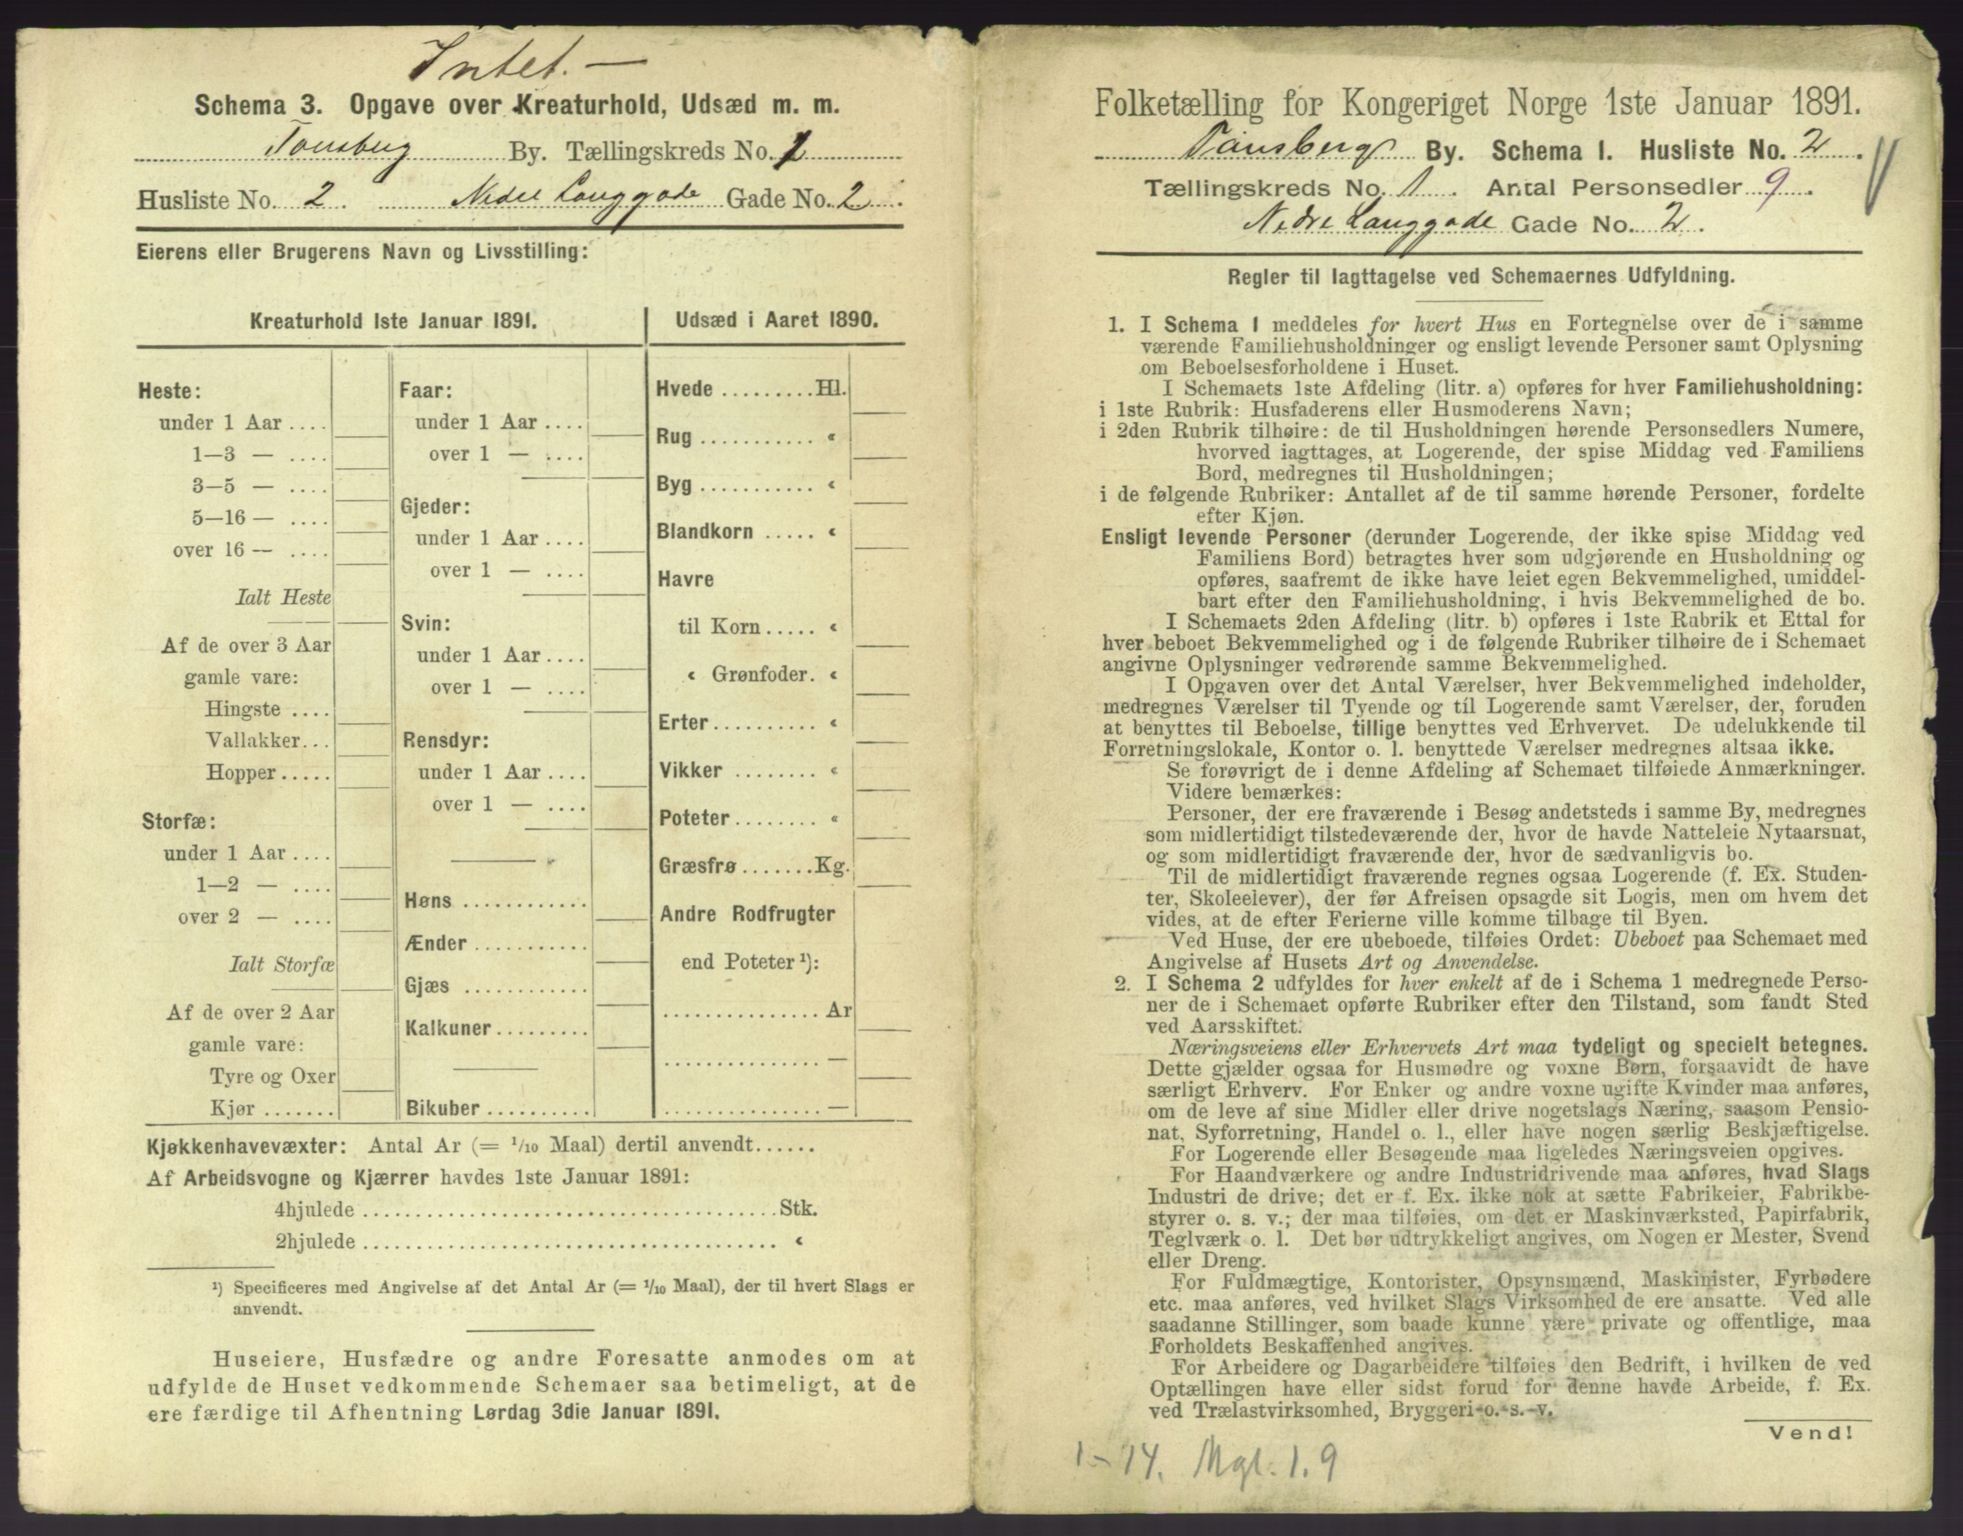 Intet. —
Schema 3. Opgave over Kreaturhold, Udsæd m. m.
Tønsberg By. Tællingskreds No. 1
Husliste No. 2. Nedre Langgade Gade No. 2.
Eierens eller Brugerens Navn og Livsstilling:
Kreaturhold 1ste Januar 1891.
Heste:
under 1 Aar ....
1—3 — ....
3—5 — ....
5—16 — ....
over 16 — ....
Ialt Heste
Af de over 3 Aar
gamle vare:
Hingste ....
Vallakker...
Hopper.....
Storfæ:
under 1 Aar ....
1—2 — ....
over 2 — ....
Ialt Storfæ
Af de over 2 Aar
gamle vare:
Tyre og Oxer
Kjør .......
Faar:
under 1 Aar ....
over 1 — ....
Gjeder:
under 1 Aar ....
over 1 — ....
Svin:
under 1 Aar ....
over 1 — ....
Rensdyr:
under 1 Aar ....
over 1 — ....
Høns ............
Ænder ...........
Gjæs ............
Kalkuner .........
Bikuber ..........
Udsæd i Aaret 1890.
Hvede .........Hl.
Rug ........... «
Byg ........... «
Blandkorn ..... «
Havre
til Korn..... «
« Grønfoder. «
Erter .......... «
Vikker ........ «
Poteter ........ «
Græsfrø .......Kg.
Andre Rodfrugter
end Poteter ¹):
............... Ar
............... —
............... —
Kjøkkenhavevæxter: Antal Ar (= 1/10 Maal) dertil anvendt......
Af Arbeidsvogne og Kjærrer havdes 1ste Januar 1891:
4hjulede ........................................Stk.
2hjulede ........................................ «
¹) Specificeres med Angivelse af det Antal Ar (= 1/10 Maal), der til hvert Slags er
anvendt.
Huseiere, Husfædre og andre Foresatte anmodes om at
udfylde de Huset vedkommende Schemaer saa betimeligt, at de
ere færdige til Afhentning Lørdag 3die Januar 1891.
Folketælling for Kongeriget Norge 1ste Januar 1891.
Tønsberg By. Schema I. Husliste No. 2.
Tællingskreds No. 1. Antal Personsedler 9.
Nedre Langgade Gade No. 2.
Regler til Iagttagelse ved Schemaernes Udfyldning.
1. I Schema 1 meddeles for hvert Hus en Fortegnelse over de i samme
værende Familiehusholdninger og ensligt levende Personer samt Oplysning
om Beboelsesforholdene i Huset.
I Schemaets 1ste Afdeling (litr. a) opføres for hver Familiehusholdning:
i 1ste Rubrik: Husfaderens eller Husmoderens Navn;
i 2den Rubrik tilhøire: de til Husholdningen hørende Personsedlers Numere,
hvorved iagttages, at Logerende, der spise Middag ved Familiens
Bord, medregnes til Husholdningen;
i de følgende Rubriker: Antallet af de til samme hørende Personer, fordelte
efter Kjøn.
Ensligt levende Personer (derunder Logerende, der ikke spise Middag ved
Familiens Bord) betragtes hver som udgjørende en Husholdning og
opføres, saafremt de ikke have leiet egen Bekvemmelighed, umiddel-
bart efter den Familiehusholdning, i hvis Bekvemmelighed de bo.
I Schemaets 2den Afdeling (litr. b) opføres i 1ste Rubrik et Ettal for
hver beboet Bekvemmelighed og i de følgende Rubriker tilhøire de i Schemaet
angivne Oplysninger vedrørende samme Bekvemmelighed.
I Opgaven over det Antal Værelser, hver Bekvemmelighed indeholder,
medregnes Værelser til Tyende og til Logerende samt Værelser, der, foruden
at benyttes til Beboelse, tillige benyttes ved Erhvervet. De udelukkende til
Forretningslokale, Kontor o. l. benyttede Værelser medregnes altsaa ikke.
Se forøvrigt de i denne Afdeling af Schemaet tilføiede Anmærkninger.
Videre bemærkes:
Personer, der ere fraværende i Besøg andetsteds i samme By, medregnes
som midlertidigt tilstedeværende der, hvor de havde Natteleie Nytaarsnat,
og som midlertidigt fraværende der, hvor de sædvanligvis bo.
Til de midlertidigt fraværende regnes ogsaa Logerende (f. Ex. Studen-
ter, Skoleelever), der før Afreisen opsagde sit Logis, men om hvem det
vides, at de efter Ferierne ville komme tilbage til Byen.
Ved Huse, der ere ubeboede, tilføies Ordet: Ubeboet paa Schemaet med
Angivelse af Husets Art og Anvendelse.
2. I Schema 2 udfyldes for hver enkelt af de i Schema 1 medregnede Perso-
ner de i Schemaet opførte Rubriker efter den Tilstand, som fandt Sted
ved Aarsskiftet.
Næringsveiens eller Erhvervets Art maa tydeligt og specielt betegnes.
Dette gjælder ogsaa for Husmødre og voxne Børn, forsaavidt de have
særligt Erhverv. For Enker og andre voxne ugifte Kvinder maa anføres,
om de leve af sine Midler eller drive nogetslags Næring, saasom Pensio-
nat, Syforretning, Handel o. l., eller have nogen særlig Beskjæftigelse.
For Logerende eller Besøgende maa ligeledes Næringsveien opgives.
For Haandværkere og andre Industridrivende maa anføres, hvad Slags
Industri de drive; det er f. Ex. ikke nok at sætte Fabrikeier, Fabrikbe-
styrer o. s. v.; der maa tilføies, om det er Maskinværksted, Papirfabrik,
Teglværk o. l. Det bør udtrykkeligt angives, om Nogen er Mester, Svend
eller Dreng.
For Fuldmægtige, Kontorister, Opsynsmænd, Maskinister, Fyrbødere
etc. maa anføres, ved hvilket Slags Virksomhed de ere ansatte. Ved alle
saadanne Stillinger, som baade kunne være private og offentlige, maa
Forholdets Beskaffenhed angives.
For Arbeidere og Dagarbeidere tilføies den Bedrift, i hvilken de ved
Optællingen have eller sidst forud for denne havde Arbeide, f. Ex.
ved Trælastvirksomhed, Bryggeri o. s. v.
Vend!
1-14. Mgl. 1.9